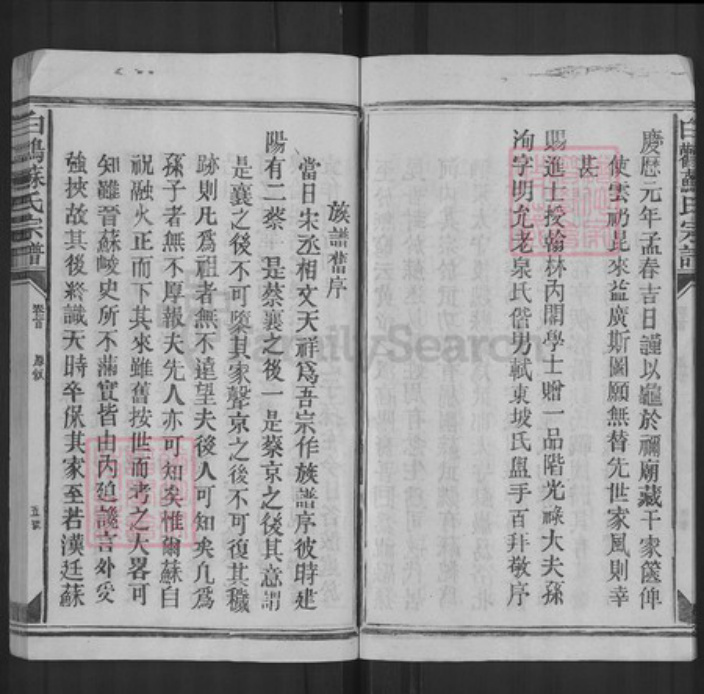 慶歷元年孟春吉日謹以龜於禰廟藏干家篋俾
使雲礽昆來益廣斯圖願無替先世家風則幸
甚
賜進士授翰林內閣學士贈一品階光祿大夫孫
洵字明允老泉氏偕男軾東坡氏盥手百拜敬序
族譜舊序
當日宋丞相文天祥爲吾宗作族譜序彼時建
陽有二蔡一是蔡襄之後一是蔡京之後其意謂
是襄之後不可墜其家聲京之後不可復其穢
跡則凡爲祖者無不達望夫後人可知矣凡爲
孫子者無不厚報夫先人亦可知矣惟爾蘇自
祝融火正而下其來雖舊按世而考之大畧可
知雖晉蘇峻史所不滿實皆由內迫讒言外受
強挾故其後終識天時卒保其家至若漢廷蘇
白鶴蘇氏宗譜
卷首
五號
白鶴蘇氏宗譜
FamilySearch